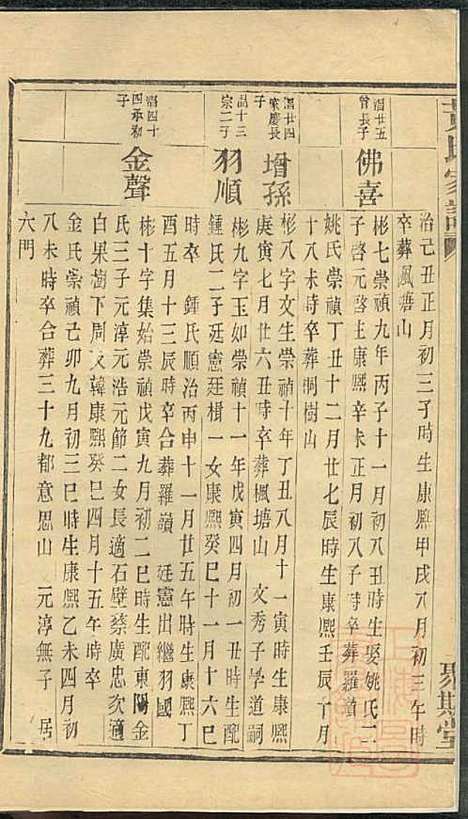 治己丑正月初三子時生康熙甲戌八月初三午時
卒葬風塘山
溍廿五
曾長子
佛喜
彬七崇禎九年丙子十一月初八丑時生娶姚氏二
子啓元啓主康熙辛卡正月初八子時卒葬羅嶺
姚氏崇禎丁丑十二月廿七辰時生康熙壬辰十月
十八未時卒葬桐樹山
溍廿四
家慶長
子
增孫
彬八字文生崇禎十年丁丑八月十一寅時生康熙
庚寅七月廿六丑時卒葬楓塘山 文秀子學道嗣
品十三
宗二子
羽順
彬九字玉如崇禎十一年戊寅四月初一丑時生配
鍾氏二子廷憲廷楫一女康熙癸巳十一月十六巳
時卒 鍾氏順治丙申十一月廿五午時生康熙丁
酉五月十三辰時卒合葬羅嶺 廷憲出繼羽國
溍四十
四承和
子
金聲
彬十字集始崇禎戊寅九月初二巳時生配東陽金
氏三子元淳元浩元節二女長適石壁蔡廣忠次適
白果樹下周 韓康熙癸巳四月十五午時卒
金氏崇禎己卯九月初三巳時生康熙乙未四月初
八未時卒合葬三十九都意思山 元淳無子 居
六門
氏家譜
聚斯堂